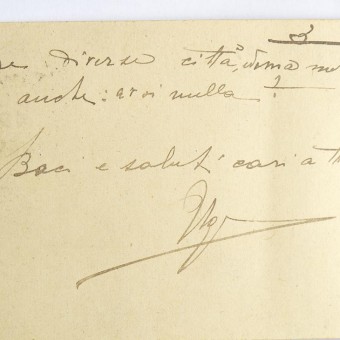 3
re diverse città,
anche: e voi nulla?
Baci e saluti cari a
Ugo